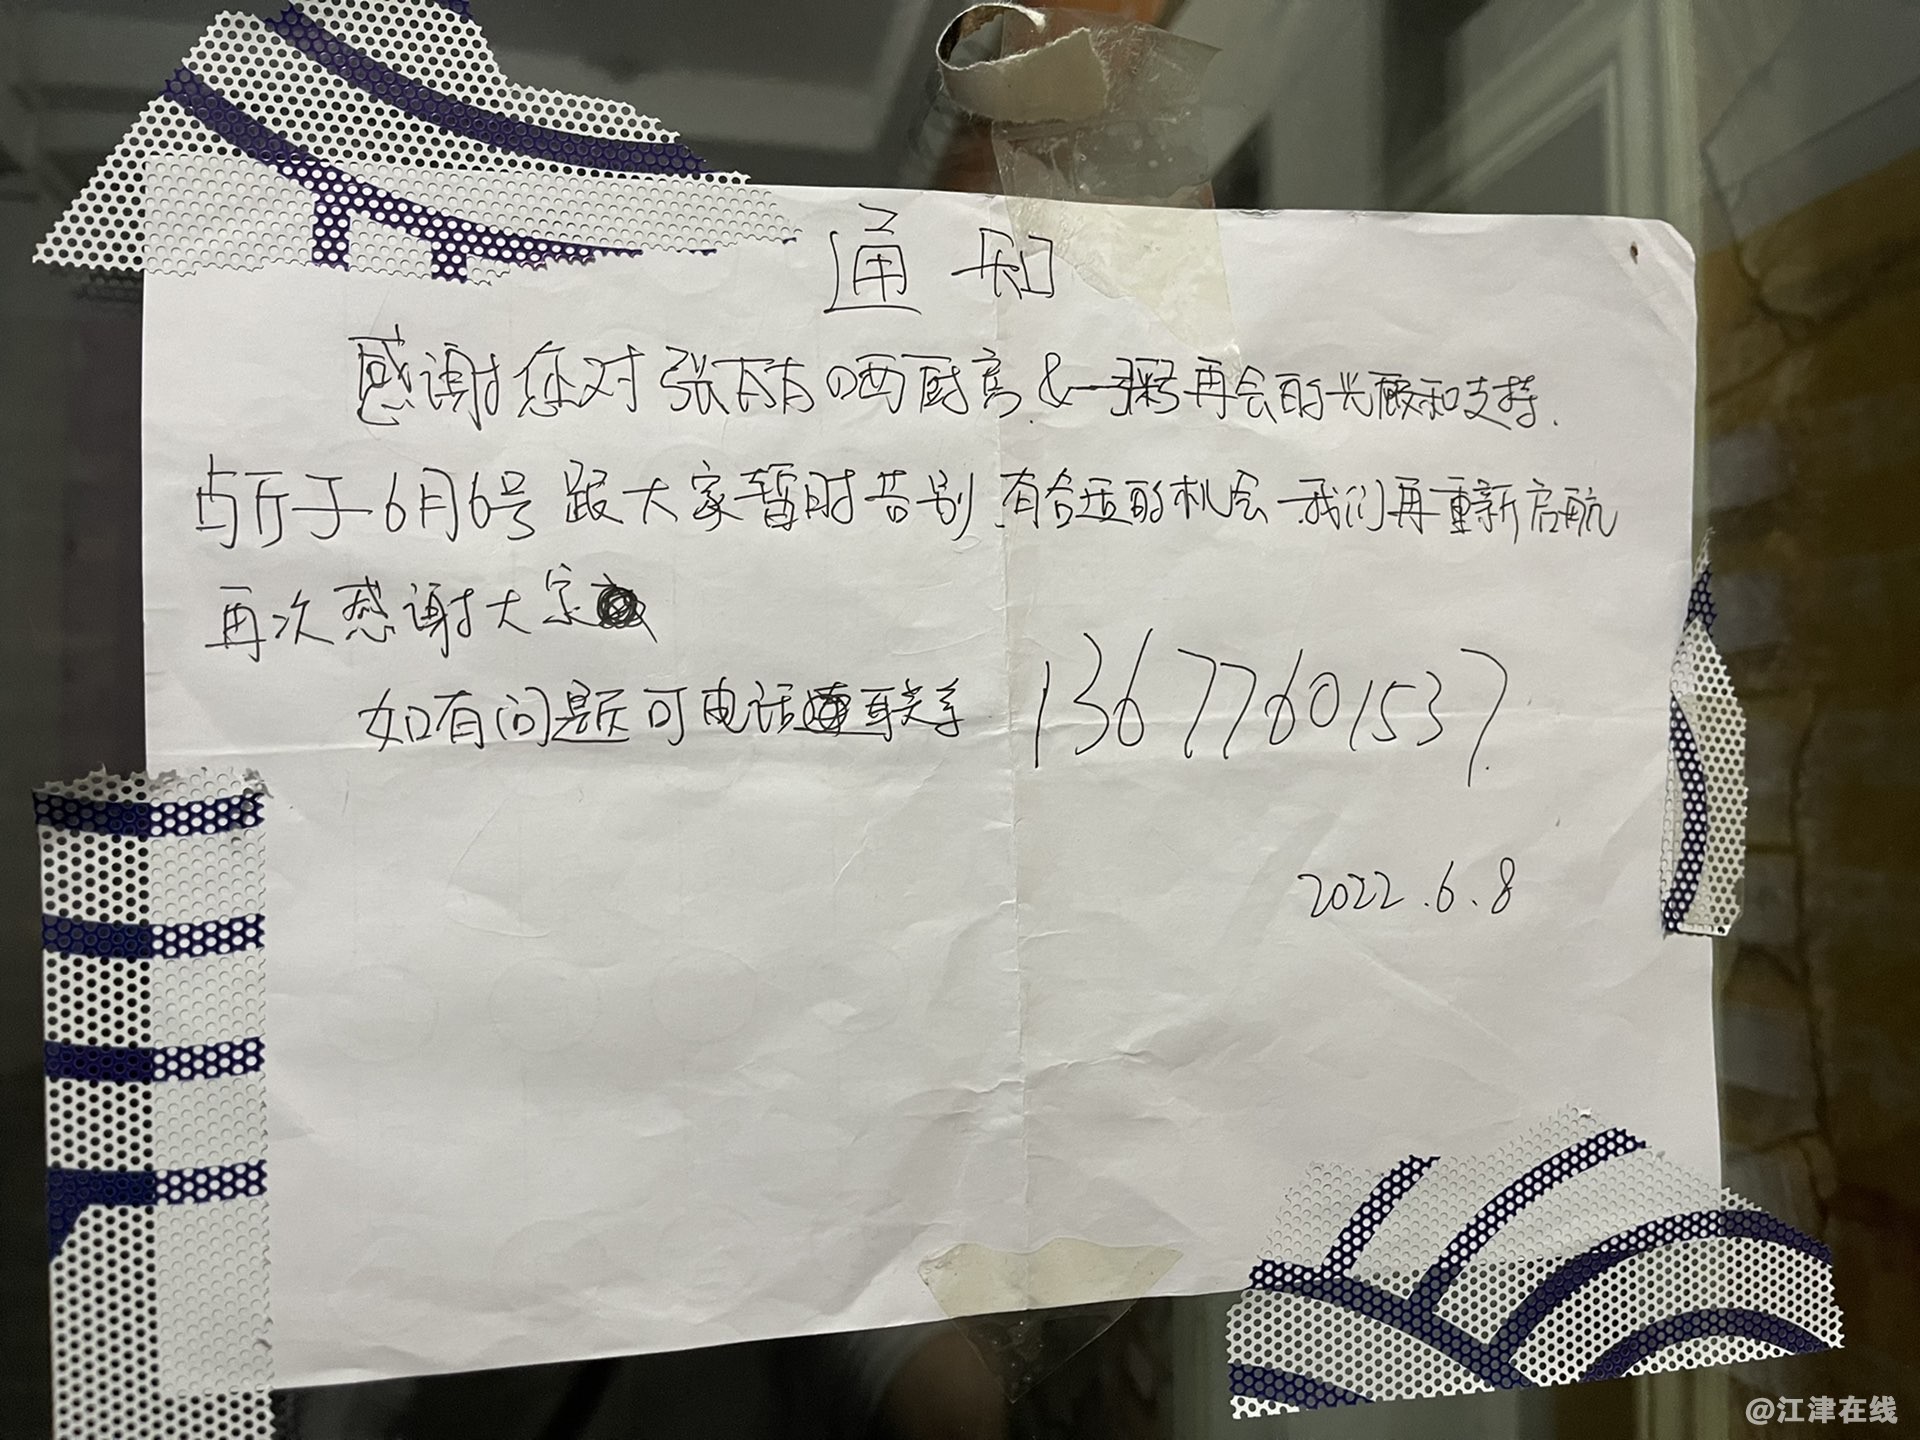 通知
感谢您对张方方の西厨房&一粥再会的光顾和支持.
与厅于6月6号跟大家暂时告别.有合适的机会我们再重新启航
再次感谢大家
如有问题可电话联系 13677601537
2022.6.8
@江津在线